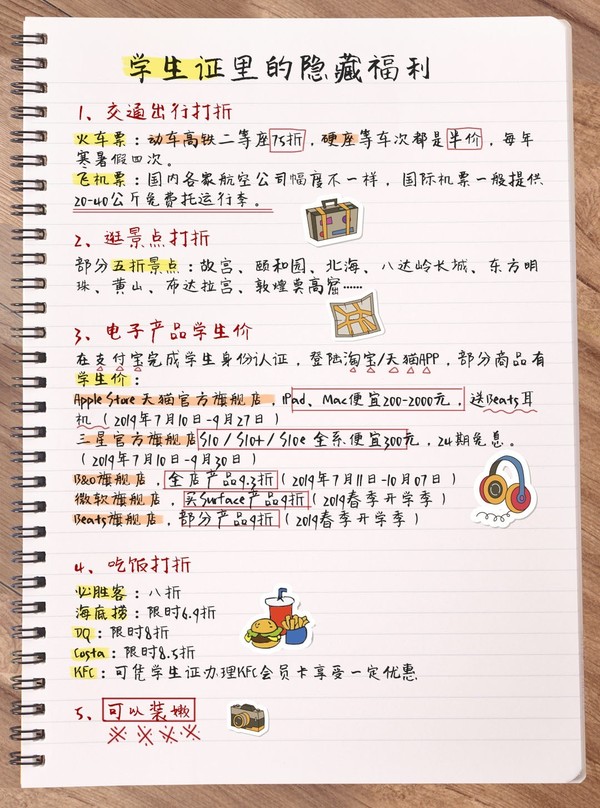 学生证里的隐藏福利
1、交通出行打折
火车票：动车高铁二等座75折，硬座等车次都是半价，每年
寒暑假四次。
飞机票：国内各家航空公司幅度不一样，国际机票一般提供
20-40公斤免费托运行李。
2、逛景点打折
部分五折景点：故宫、颐和园、北海、八达岭长城、东方明
珠、黄山、布达拉宫、敦煌莫高窟……
3、电子产品学生价
在支付宝完成学生身份认证，登陆淘宝/天猫APP，部分商品有
学生价：
Apple Store天猫官方旗舰店，iPad、Mac便宜200-2000元，送Beats耳
机（2019年7月10日-9月27日）
三星官方旗舰店S10/S10+/S10e 全系便宜300元，24期免息。
（2019年7月10日-9月30日）
B&O旗舰店，全店产品9.3折（2019年7月11日-10月07日）
微软旗舰店，买Surface产品9折（2019春季开学季）
Beats旗舰店，部分产品9折（2019春季开学季）
4、吃饭打折
必胜客：八折
海底捞：限时6.9折
DQ：限时8折
Costa：限时8.5折
KFC：可凭学生证办理KFC会员卡享受一定优惠
5、可以装嫩